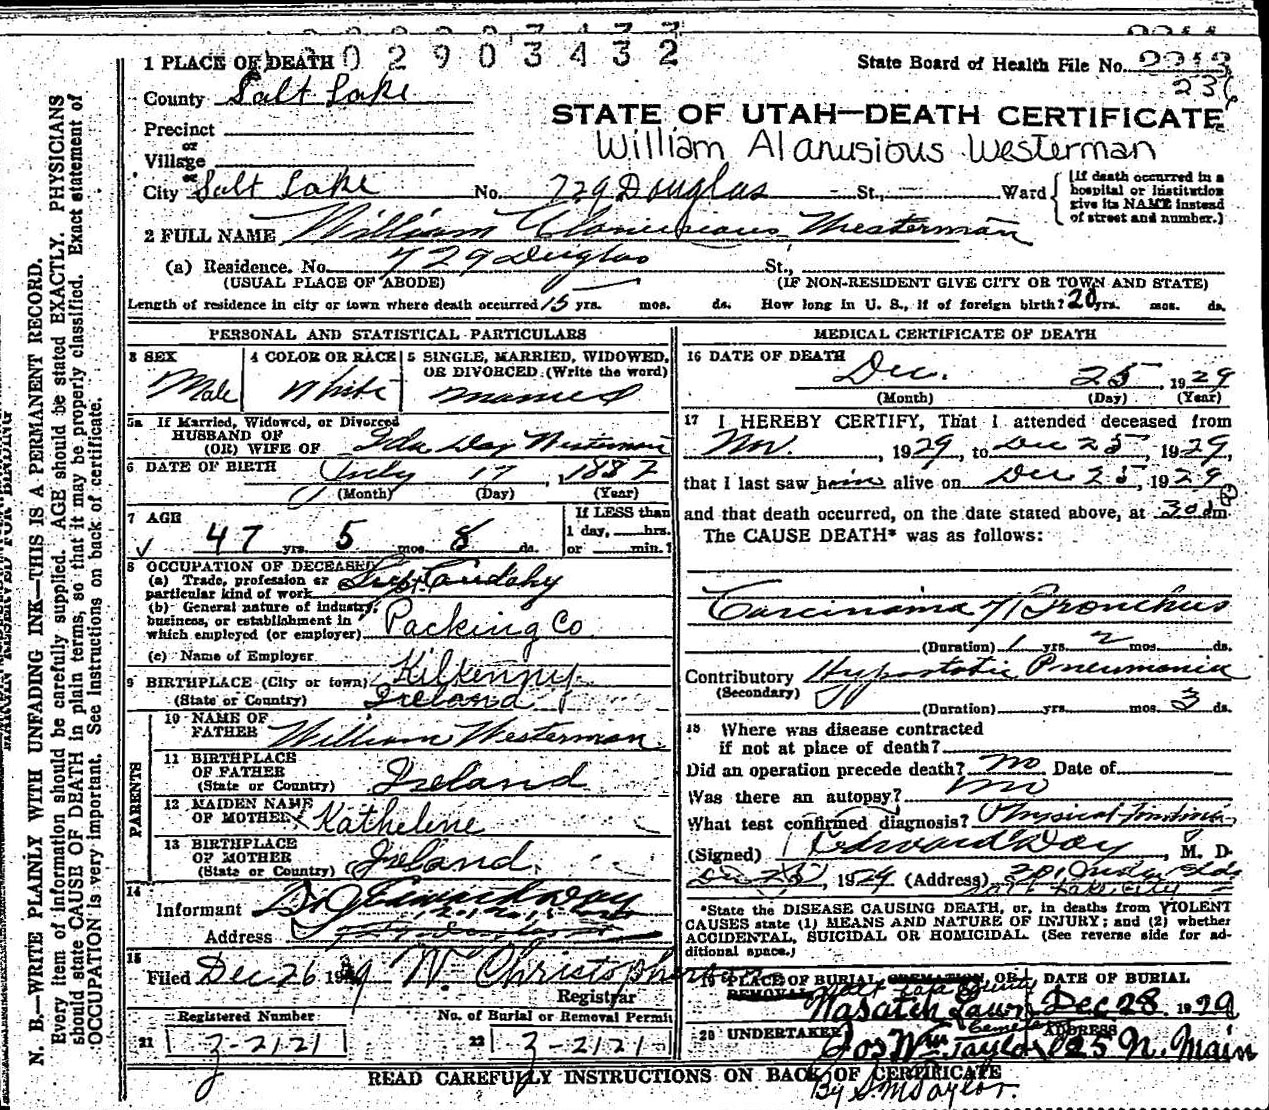 002903432
1 PLACE OF DEATH
State Board of Health File No.
County Salt Lake
236
Precinct
or
Village
or
STATE OF UTAH—DEATH CERTIFICATE
William Alanusious Westerman
City Salt Lake No. 729 Douglas St., Ward
[If death occurred in a hospital or institution give its NAME instead of street and number.]
2 FULL NAME William Westerman
(a) Residence. No. 729 Douglas St.,
(USUAL PLACE OF ABODE) (IF NON-RESIDENT GIVE CITY OR TOWN AND STATE)
Length of residence in city or town where death occurred 15 yrs. mos. ds. How long in U. S., if of foreign birth? 20 yrs. mos. ds.
PERSONAL AND STATISTICAL PARTICULARS
3 SEX
Male
4 COLOR OR RACE
White
5 SINGLE, MARRIED, WIDOWED, OR DIVORCED (Write the word)
Married
5a If Married, Widowed, or Divorced
HUSBAND OF
(OR) WIFE OF Ida Day Westerman
6 DATE OF BIRTH July 17, 1882
(Month) (Day) (Year)
7 AGE
47 yrs. 5 mos. 8 ds.
If LESS than
1 day, hrs.
or min.?
8 OCCUPATION OF DECEASED
(a) Trade, profession or
particular kind of work Supt. Cudahy
(b) General nature of industry,
business, or establishment in
which employed (or employer) Packing Co
(c) Name of Employer
9 BIRTHPLACE (City or town) Kilkenny
(State or Country) Ireland
PARENTS
10 NAME OF
FATHER William Westerman
11 BIRTHPLACE
OF FATHER
(State or Country) Ireland
12 MAIDEN NAME
OF MOTHER Kathelene
13 BIRTHPLACE
OF MOTHER
(State or Country) Ireland
14
Informant Dr J Edward Day
Address
15
Filed Dec 26 1929 W. Christopherson
Registrar
Registered Number No. of Burial or Removal Permit
21 Z-2121 22 Z-2121
MEDICAL CERTIFICATE OF DEATH
16 DATE OF DEATH
Dec. 25, 1929
(Month) (Day) (Year)
17 I HEREBY CERTIFY, That I attended deceased from
Nov., 1929, to Dec 25, 1929,
that I last saw him alive on Dec 25, 1929
and that death occurred, on the date stated above, at m
The CAUSE DEATH* was as follows:
Carcinoma of Bronchus
(Duration) 1 yrs. 2 mos. ds.
Contributory Hypostatic Pneumonia
(Secondary)
(Duration) yrs. mos. 3 ds.
18 Where was disease contracted
if not at place of death?
Did an operation precede death? No Date of
Was there an autopsy? No
What test confirmed diagnosis? Physical findings
(Signed) J Edward Day, M. D.
Dec 25, 1929 (Address)
Salt Lake City
*State the DISEASE CAUSING DEATH, or, in deaths from VIOLENT
CAUSES state (1) MEANS AND NATURE OF INJURY; and (2) whether
ACCIDENTAL, SUICIDAL OR HOMICIDAL. (See reverse side for additional space.)
19 PLACE OF BURIAL CREMATION, OR REMOVAL
Salt Lake County
Wasatch Lawn
Cemetery
DATE OF BURIAL
Dec 28 1929
20 UNDERTAKER
Jos Wm Taylor
ADDRESS
125 N. Main
READ CAREFULLY INSTRUCTIONS ON BACK OF CERTIFICATE
By S. M Taylor.
N. B.—WRITE PLAINLY WITH UNFADING INK—THIS IS A PERMANENT RECORD.
Every item of information should be carefully supplied. AGE should be stated EXACTLY. PHYSICIANS
should state CAUSE OF DEATH in plain terms, so that it may be properly classified. Exact statement of
OCCUPATION is very important. See Instructions on back of certificate.
MARGIN RESERVED FOR BINDING